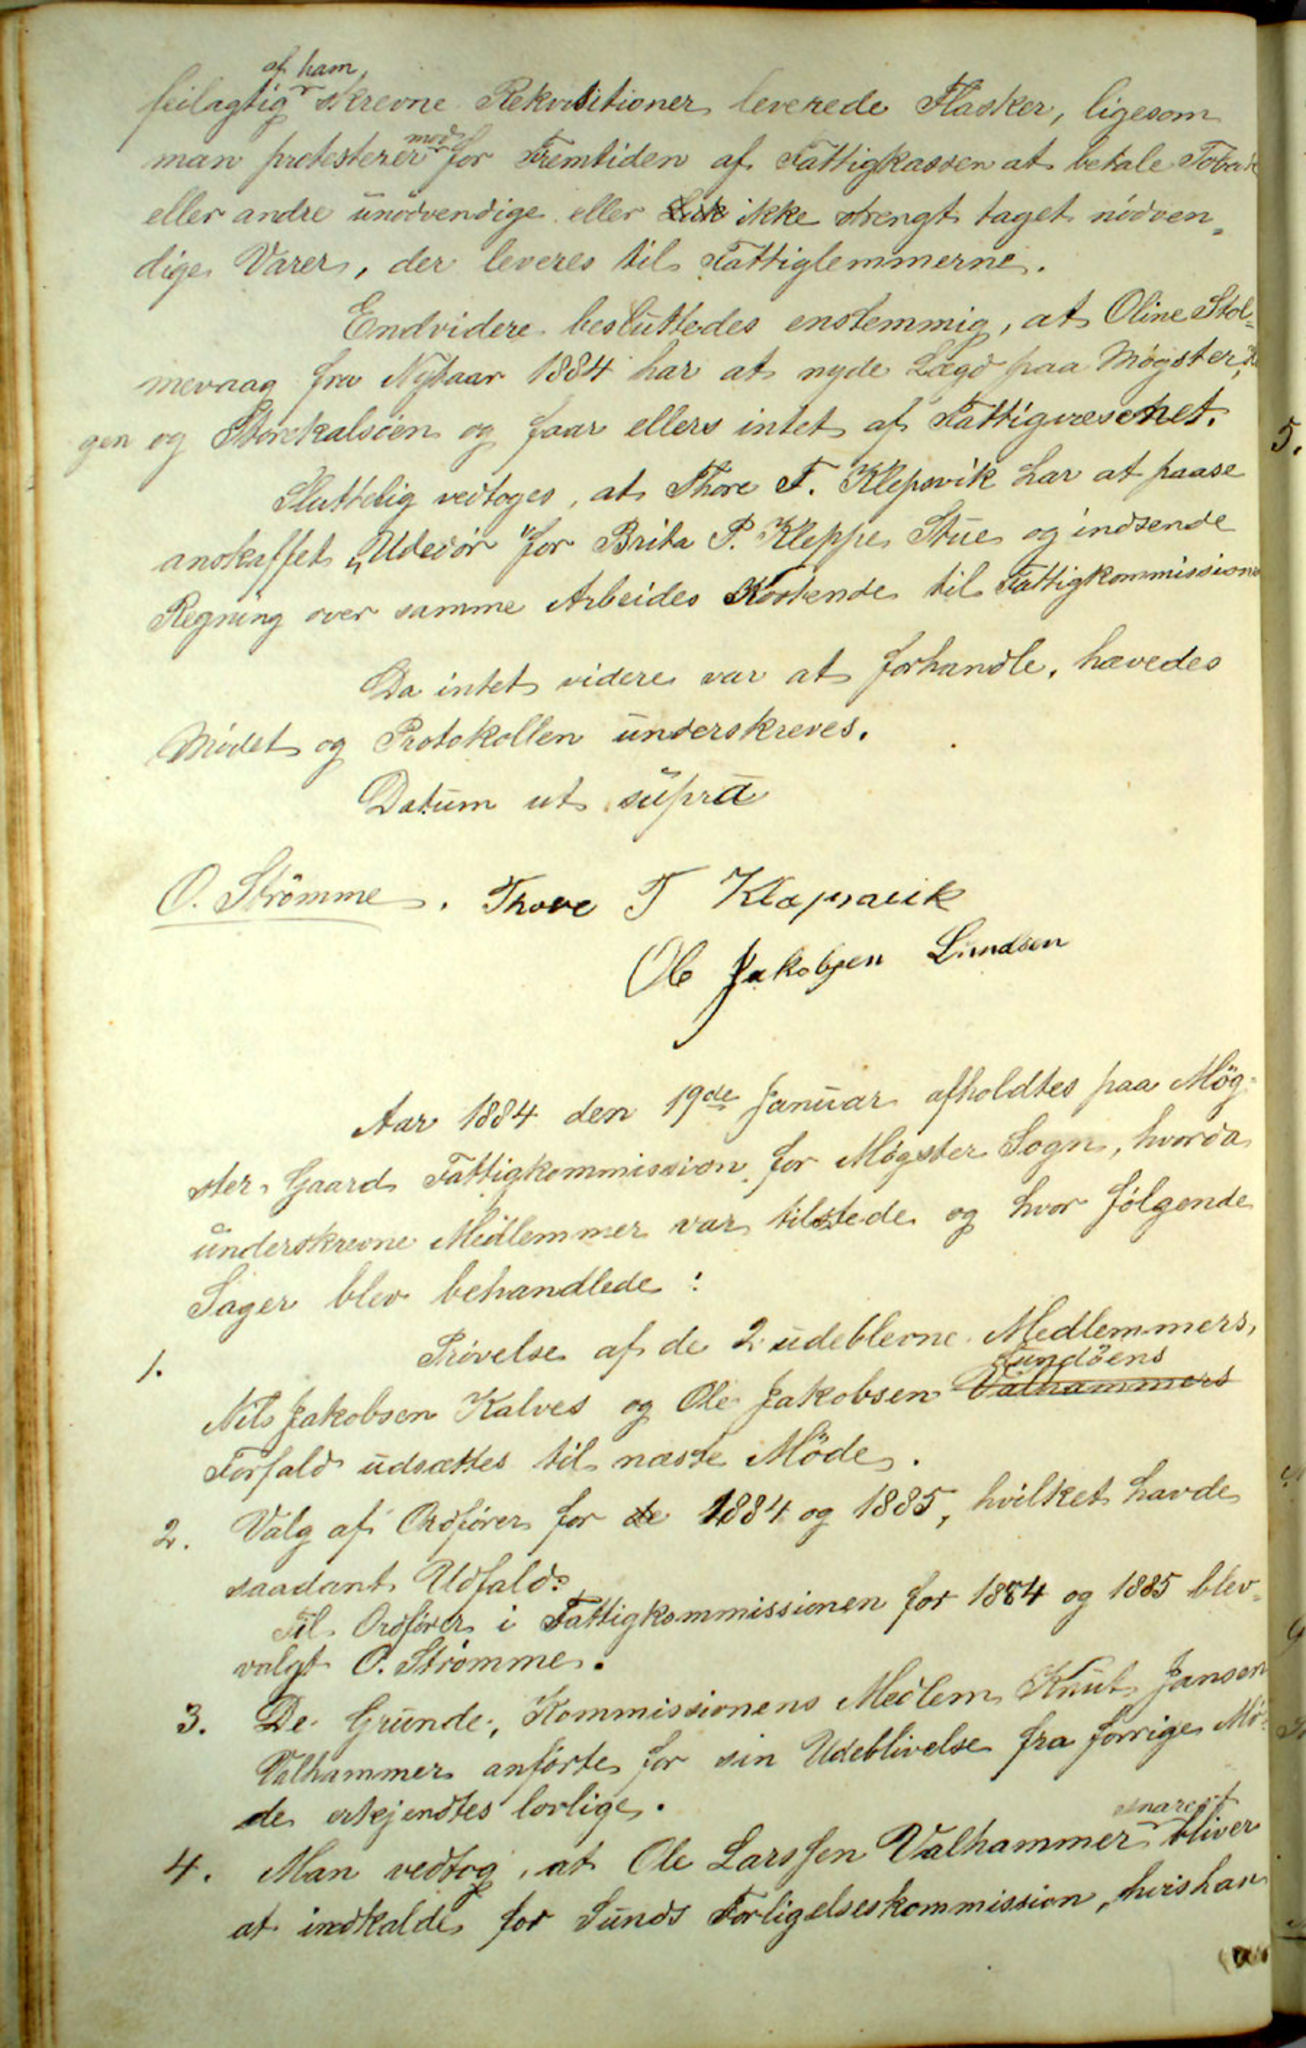 af ham,
feilagtig skrevne Rekvisitioner leverede Flasker, ligesom
man protesterer mod for Fremtiden af Fattigkassen at betale Tobak
eller andre unödvendige eller ikke strengt taget nödven-
dige Varer, der leveres til Fattiglemmerne.
Endvidere besluttedes enstemmig, at Oline Stol-
mevaag fra Nytaar 1884 har at nyde Lægd paa Møgster,
gen og Storekalsöen og faar ellers intet af Fattigvesenet.
Sluttelig vedtoges, at Thore T. Klepsvik har at paase
anskaffet "Udedör" for Brita P. Kleppe Stue og indsende
Regning over samme Arbeides Kostende til Fattigkommissionen
Da intet videre var at forhandle, hævedes
Mödet og Protokollen underskreves.
Datum ut supra
O. Strömme. Thore T Klæpsvik
Ole Jakobsen Lundöen
Aar 1884 den 19de Januar afholdtes paa Møg-
ster Gaard Fattigkommission for Møgster Sogn, hvorda
underskrevne Medlemmer var tilstede og hvor fölgende
Sager blev behandlede:
1. Prövelse af de 2 udeblevne Medlemmers,
Lundöens
Nils Jakobsen Kalves og Ole Jakobsen Valhammers
Forfald udsættes til næste Möde.
2. Valg af Ordförer for de 1884 og 1885, hvilket havde
saadant Udfald:
Til Ordförer i Fattigkommissionen for 1884 og 1885 blev
valgt O. Strömme.
3. De Grunde, Kommissionens Medlem Knut Jansen
Valhammer anförte for sin Udeblivelse fra forrige Mö-
de erkjendtes lovlige.
snarest
4. Man vedtog, at Ole Larssen Valhammer bliver
at indkalde for Sunds Forligelseskommission, hvis han